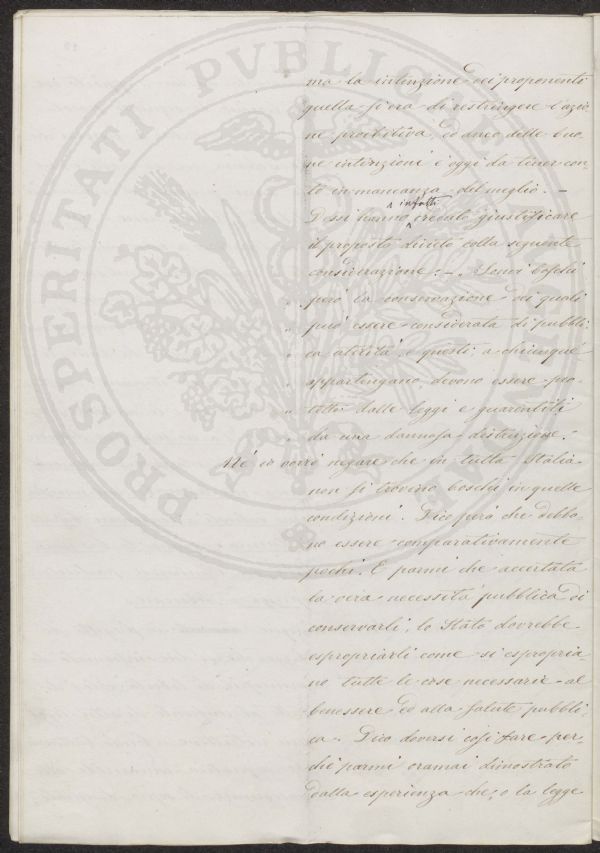 PROSPERITATI PVBLICAE
ma la intenzione dei proponenti
quella si era di restringere l'azio
ne proibitiva, ed anco delle buo,
ne intenzioni è oggi da tener con
to in mancanza del meglio. –
infatti
Essi hanno creduto giustificare
il proposto divieto colla seguente
considerazione: –. Sonvi boschi
" però la conservazione dei quali
" può essere considerata di pubbli:
" ca utilità, e questi, a chiunque
" appartengano, devono essere pro-
" tetti dalle leggi e guarentiti
" da una dannosa distruzione."
Nè io vorrò negare che in tutta Italia
non si trovino boschi in quelle
condizioni. Dico però che debbo-
no essere comparativamente
pochi. E parmi che accertata
la vera necessità pubblica di
conservarli, lo Stato dovrebbe
espropriarli come si espropria-
no tutte le cose necessarie al
benessere ed alla salute pubbli,
ca. Dico doversi così fare per-
chè parmi oramai dimostrato
dalla esperienza che, o la legge